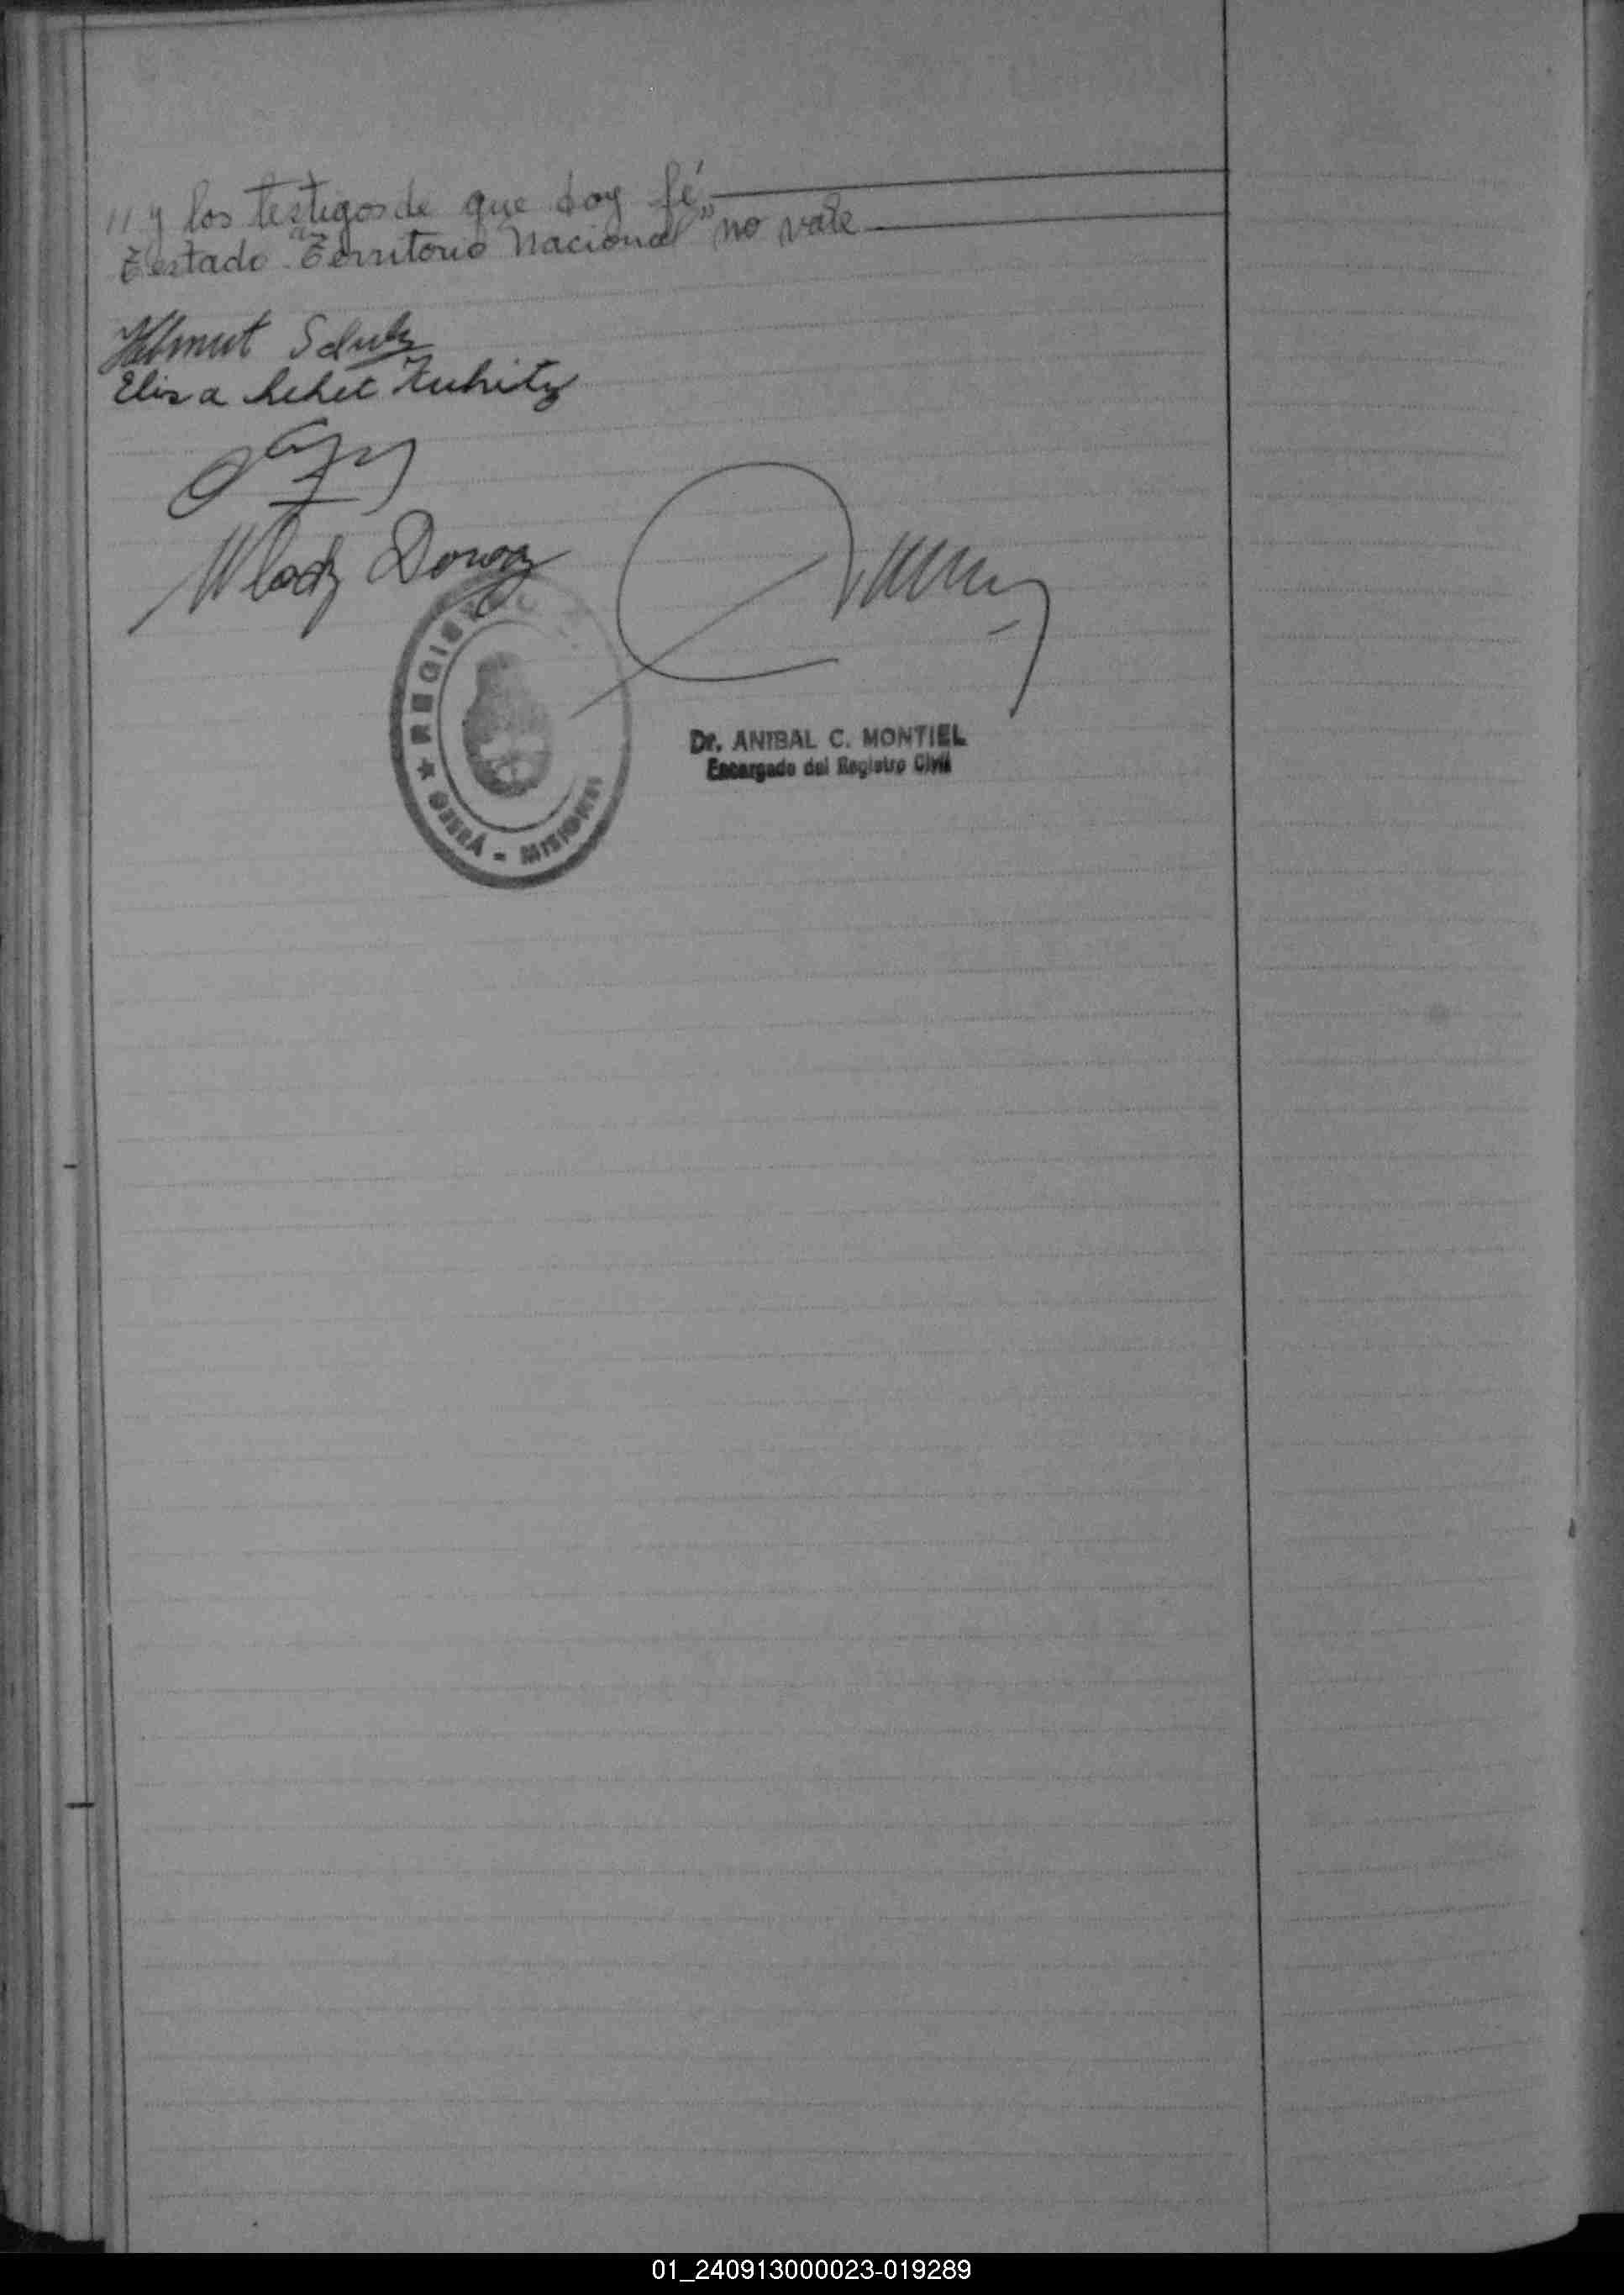 // y los testigos de que doy fé
Testado "Territorio Nacional" no vale
Helmut Schulz
Elisa
Wlady
REGISTRO
★ OBERÁ - MISIONES
Dr. ANIBAL C. MONTIEL
Encargado del Registro Civil
01_240913000023-019289